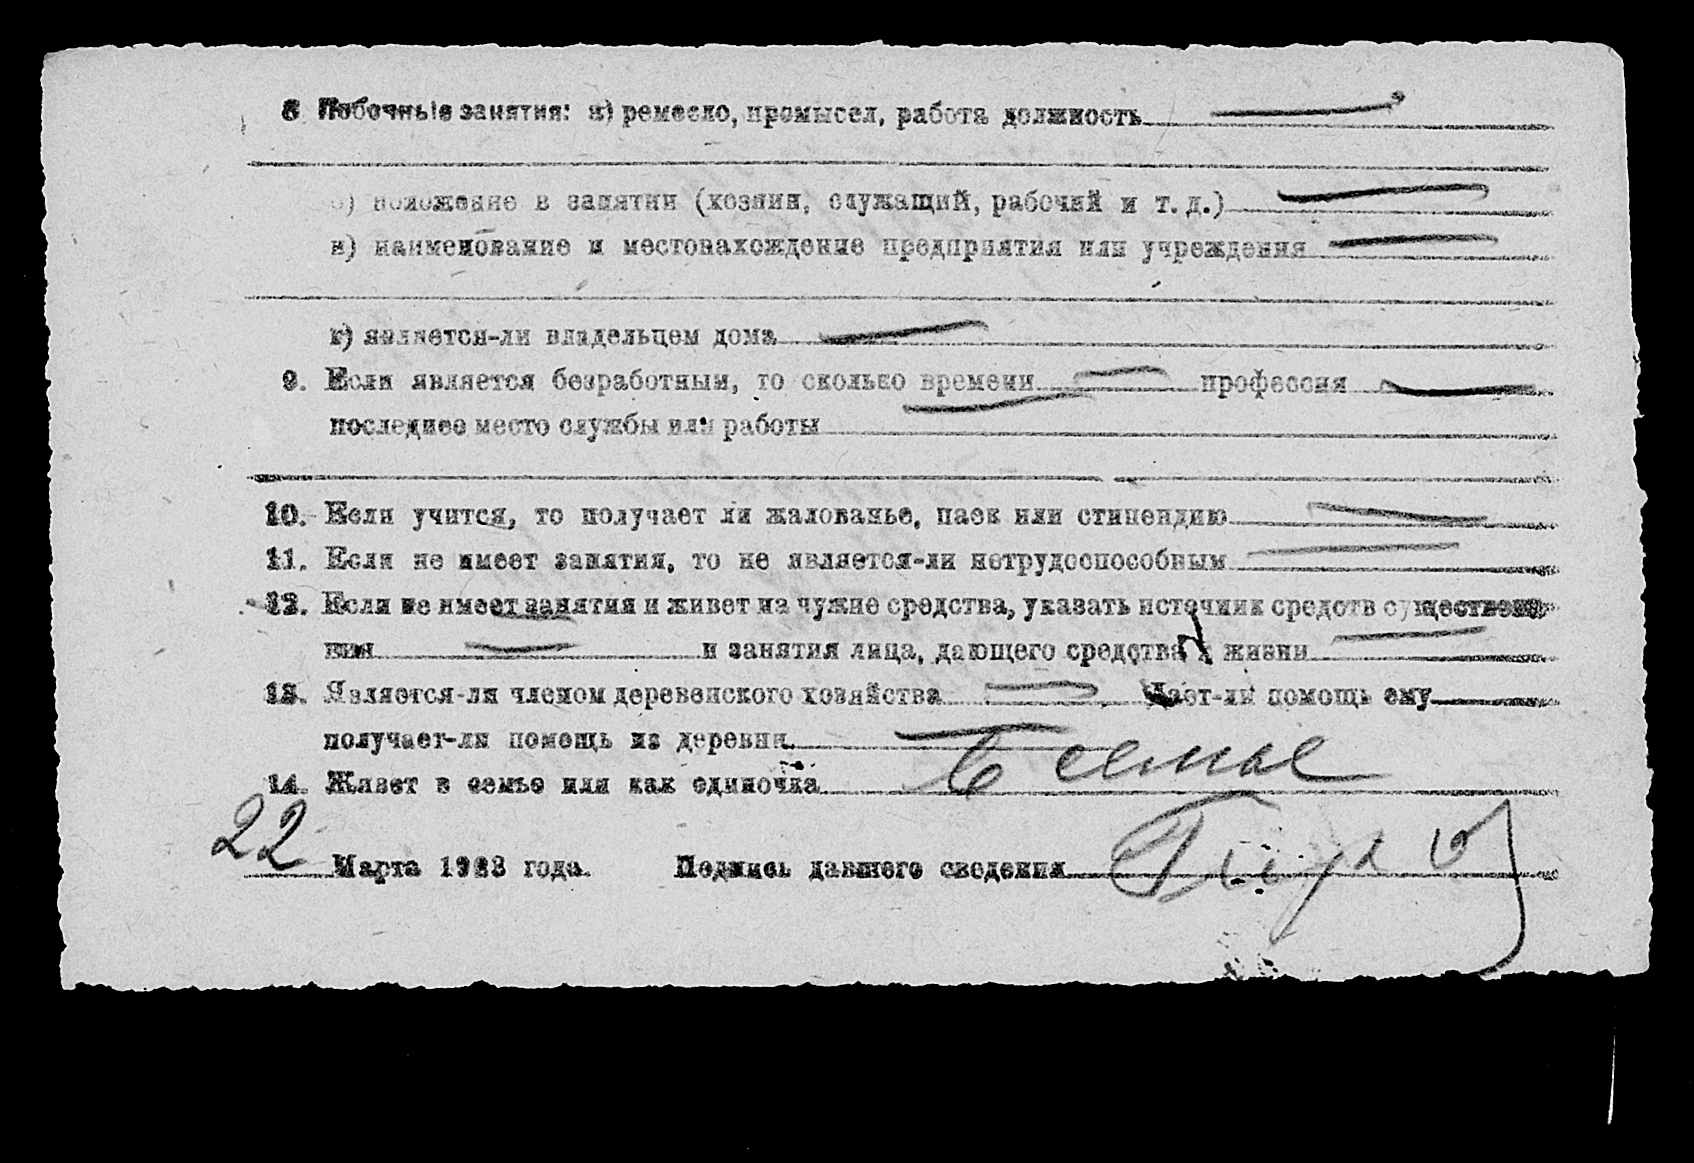 8 Побочные занятия: а) ремесло, промысел, работа должность —
б) положение в занятии (хозяин, служащий, рабочий и т. д.) —
в) наименование и местонахождение предприятия или учреждения —
г) является-ли владельцем дома —
9. Если является безработным, то сколько времени — профессия —
последнее место службы или работы —
10. Если учится, то получает ли жалованье, паек или стипендию —
11. Если не имеет занятия, то не является-ли нетрудоспособным —
12. Если не имеет занятия и живет на чужие средства, указать источник средств существова-
ния — и занятия лица, дающего средства к жизни —
13. Является-ли членом деревенского хозяйства — Дает-ли помощь ему
получает-ли помощь из деревни —
14. Живет в семье или как одиночка в семье
22 Марта 1923 года. Подпись давшего сведения